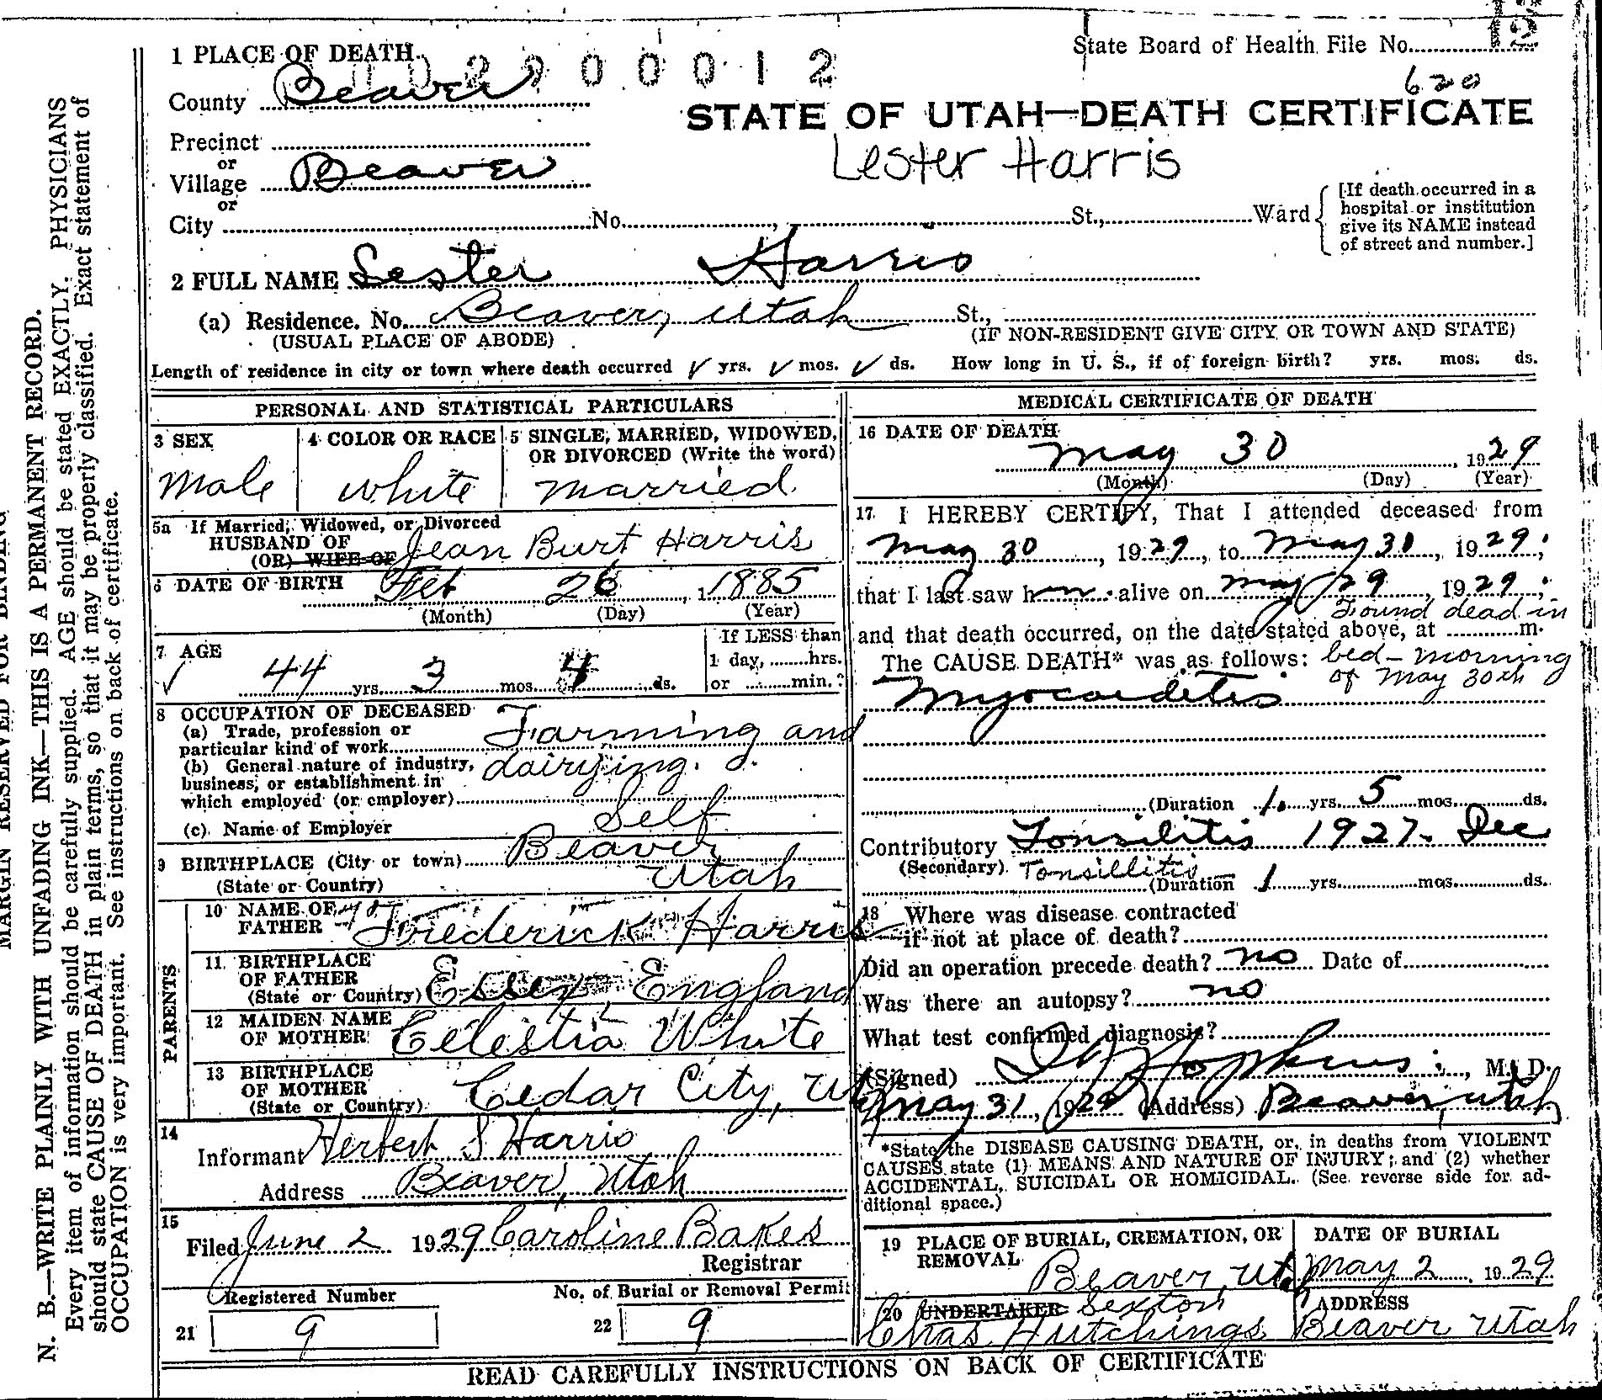 1 PLACE OF DEATH
2900012
State Board of Health File No. 12
620
County Beaver
STATE OF UTAH—DEATH CERTIFICATE
Precinct
or
Village Beaver
Lester Harris
or
City No. St., Ward
[If death occurred in a
hospital or institution
give its NAME instead
of street and number.]
2 FULL NAME Lester Harris
(a) Residence. No. Beaver, Utah St.,
(USUAL PLACE OF ABODE) (IF NON-RESIDENT GIVE CITY OR TOWN AND STATE)
Length of residence in city or town where death occurred ✓ yrs. ✓ mos. ✓ ds. How long in U. S., if of foreign birth? yrs. mos. ds.
PERSONAL AND STATISTICAL PARTICULARS
3 SEX
Male
4 COLOR OR RACE
White
5 SINGLE, MARRIED, WIDOWED,
OR DIVORCED (Write the word)
Married
5a If Married, Widowed, or Divorced
HUSBAND OF
(OR) WIFE OF Jean Burt Harris
6 DATE OF BIRTH Feb 26, 1885
(Month) (Day) (Year)
7 AGE
✓ 44 yrs. 3 mos. 4 ds.
If LESS than
1 day, hrs.
or min.?
8 OCCUPATION OF DECEASED
(a) Trade, profession or
particular kind of work Farming and
(b) General nature of industry,
business, or establishment in
which employed (or employer) dairying.
(c) Name of Employer Self
9 BIRTHPLACE (City or town) Beaver
(State or Country) Utah
PARENTS
10 NAME OF
FATHER Frederick Harris
11 BIRTHPLACE
OF FATHER
(State or Country) Essex, England
12 MAIDEN NAME
OF MOTHER Celestia White
13 BIRTHPLACE
OF MOTHER
(State or Country) Cedar City, Utah
14
Informant Herbert S Harris
Address Beaver, Utah
15
Filed June 2 1929 Caroline Bakes
Registrar
Registered Number
21 9
No. of Burial or Removal Permit
22 9
MEDICAL CERTIFICATE OF DEATH
16 DATE OF DEATH
May 30, 1929
(Month) (Day) (Year)
17 I HEREBY CERTIFY, That I attended deceased from
May 30, 1929, to May 31, 1929;
that I last saw him alive on May 29 1929;
Found dead in
and that death occurred, on the date stated above, at m.
The CAUSE DEATH* was as follows: bed - morning
of May 30th
Myocarditis
(Duration 1 yrs. 5 mos. ds.
Contributory Tonsilitis 1927- Dec
(Secondary) Tonsillitis
(Duration 1 yrs. mos. ds.
18 Where was disease contracted
if not at place of death?
Did an operation precede death? no Date of
Was there an autopsy? no
What test confirmed diagnosis?
(Signed) Hopkins, M. D.
May 31, 1929 (Address) Beaver, Utah
*State the DISEASE CAUSING DEATH, or, in deaths from VIOLENT
CAUSES state (1) MEANS AND NATURE OF INJURY; and (2) whether
ACCIDENTAL, SUICIDAL OR HOMICIDAL. (See reverse side for ad-
ditional space.)
19 PLACE OF BURIAL, CREMATION, OR
REMOVAL
Beaver, Utah
DATE OF BURIAL
May 2 1929
20 UNDERTAKER Sexton
Chas Hutchings
ADDRESS
Beaver Utah
READ CAREFULLY INSTRUCTIONS ON BACK OF CERTIFICATE
MARGIN RESERVED FOR BINDING
N. B.—WRITE PLAINLY WITH UNFADING INK—THIS IS A PERMANENT RECORD.
Every item of information should be carefully supplied. AGE should be stated EXACTLY. PHYSICIANS
should state CAUSE OF DEATH in plain terms, so that it may be properly classified. Exact statement of
OCCUPATION is very important. See instructions on back of certificate.